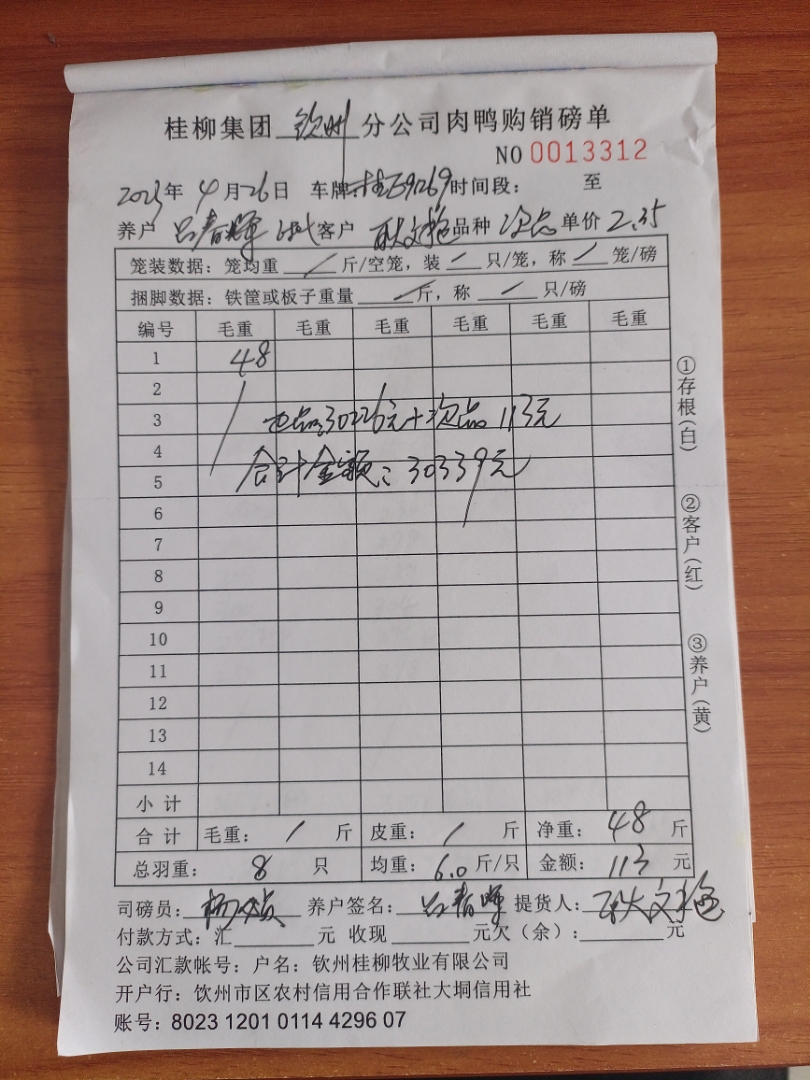 桂柳集团 钦州 分公司肉鸭购销磅单
NO 0013312
2023年 4月26日 车牌:桂 69269 时间段: 至
养户 吕春晖 客户 耿文艳 品种 次品 单价 2.35
笼装数据: 笼均重 / 斤/空笼, 装 / 只/笼, 称 / 笼/磅
捆脚数据: 铁筐或板子重量 / 斤, 称 / 只/磅
编号 毛重 毛重 毛重 毛重 毛重 毛重
1 48
2
3 正品:30226元+次品 113元
4
5 合计金额:30339元
6
7
8
9
10
11
12
13
14
小计
合计 毛重: / 斤 皮重: / 斤 净重: 48 斤
总羽重: 8 只 均重: 6.0 斤/只 金额: 113 元
司磅员: 养户签名: 吕春晖 提货人: 耿文艳
付款方式: 汇 元 收现 元欠(余): 元
公司汇款帐号: 户名: 钦州桂柳牧业有限公司
开户行: 饮州市区农村信用合作联社大垌信用社
账号: 8023 1201 0114 4296 07
①存根(白)
②客户(红)
③养户(黄)